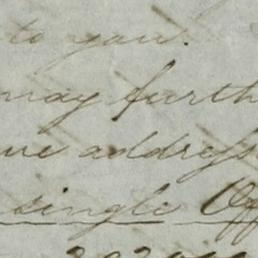 to you.
may furth
ue address
single Off